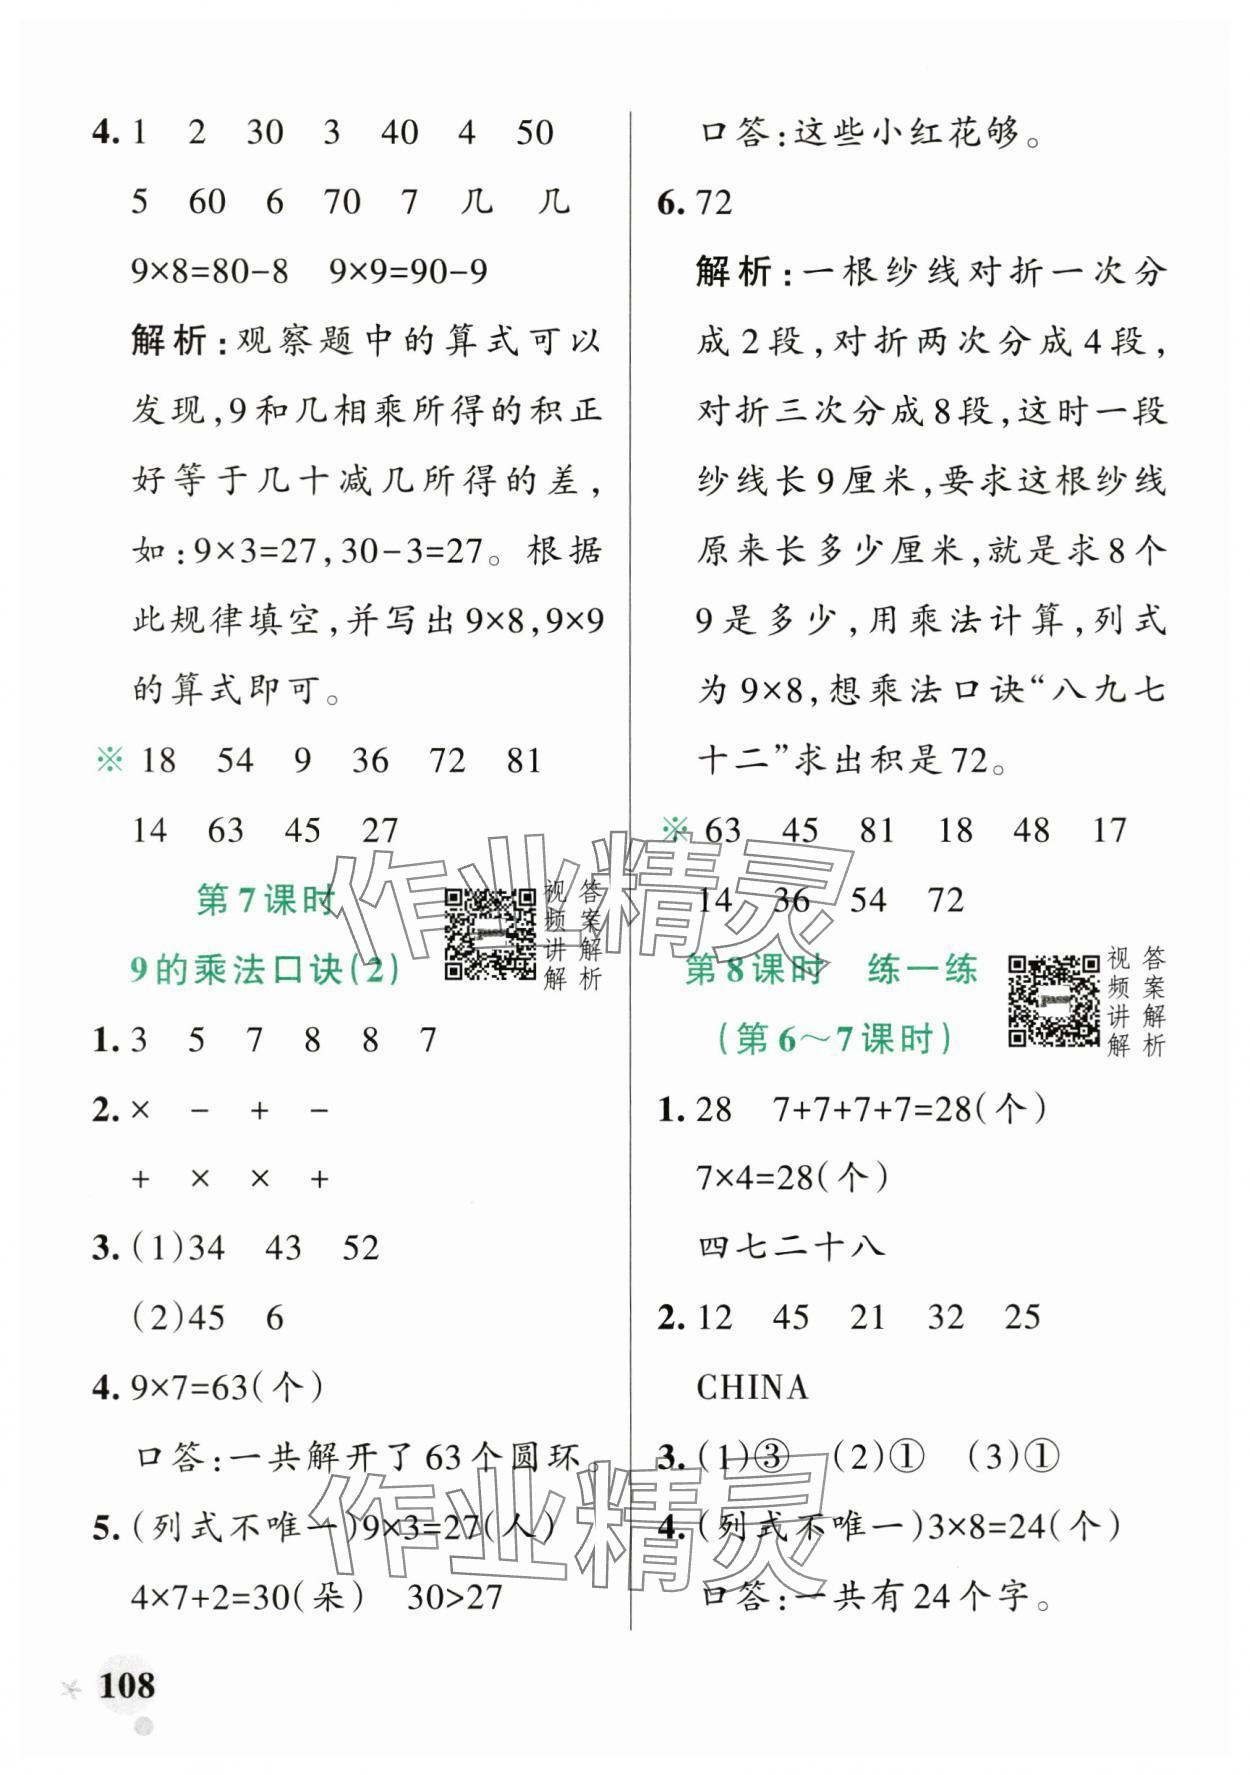 4. 1 2 30 3 40 4 50
5 60 6 70 7 几 几
9×8=80-8 9×9=90-9
解析:观察题中的算式可以
发现,9和几相乘所得的积正
好等于几十减几所得的差,
如:9×3=27,30-3=27。根据
此规律填空,并写出9×8,9×9
的算式即可。
※ 18 54 9 36 72 81
14 63 45 27
第7课时
9的乘法口诀(2)
视频讲解
答案解析
1. 3 5 7 8 8 7
2. × - + -
+ × × +
3. (1)34 43 52
(2)45 6
4. 9×7=63(个)
口答:一共解开了63个圆环。
5. (列式不唯一)9×3=27(人)
4×7+2=30(朵) 30>27
口答:这些小红花够。
6. 72
解析:一根纱线对折一次分
成2段,对折两次分成4段,
对折三次分成8段,这时一段
纱线长9厘米,要求这根纱线
原来长多少厘米,就是求8个
9是多少,用乘法计算,列式
为9×8,想乘法口诀“八九七
十二”求出积是72。
※ 63 45 81 18 48 17
14 36 54 72
第8课时 练一练
(第6~7课时)
视频讲解
答案解析
1. 28 7+7+7+7=28(个)
7×4=28(个)
四七二十八
2. 12 45 21 32 25
CHINA
3. (1)③ (2)① (3)①
4. (列式不唯一)3×8=24(个)
口答:一共有24个字。
108
作业精灵
作业精灵
pass
pass